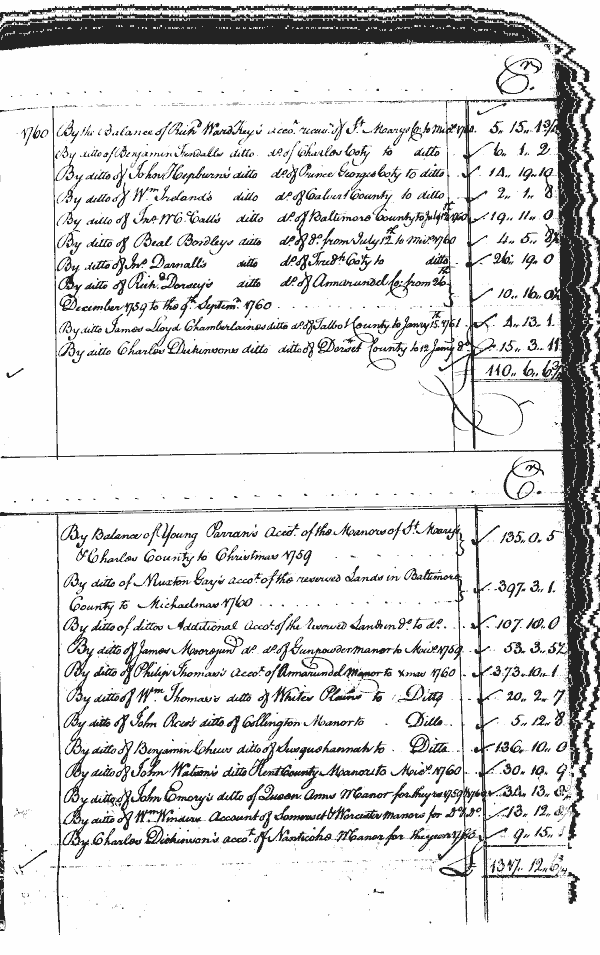 Cr.
1760 By the Balance of Richd. Ward Key's acco. receivr. of St. Marys Co. to Mics. 1760. 5.. 15.. 1
By ditto of Benjamin Fendalls ditto do. of Charles Coty to ditto 6.. 1.. 2
By ditto of John Hepburn's ditto do. of Prince Georges Coty to ditto 14.. 19.. 10
By ditto of Wm. Ireland's ditto do. of Calvert County to ditto 2.. 1.. 8
By ditto of Jno. McCall's ditto do. of Baltimore County to July 12th 1760 19.. 11.. 0
By ditto of Beal Bordley's ditto do. of do. from July 12th to Mics. 1760 4.. 5.. 8
By ditto of Jno. Darnall's ditto do. of Fredk. Coty to ditto 26.. 19.. 0
By ditto of Richd. Dorsey's ditto do. of Annarundel Co: from 26th
December 1759 to the 9th Septemr. 1760 10.. 16.. 0
By ditto James Lloyd Chamberlaines ditto do. of Talbot County to Janry 15th 1761 4.. 13.. 1
By ditto Charles Dickinsons ditto ditto of Dorset County to 12 Janry do. 15.. 3.. 11
£ 110.. 6.. 6
Cr.
By Balance of Young Parran's Accot. of the Manors of St. Marys
& Charles County to Christmas 1759 135.. 0.. 5
By ditto of Nuxton Gay's accot. of the reserved Lands in Baltimore
County to Michaelmas 1760 397.. 3.. 1
By ditto of dittos Additional Accot. of the reserved Lands in do. to do. 107.. 18.. 0
By ditto of James Moore junr. do. do. of Gunpowder Manor to Mics. 1759 53.. 3.. 5
By ditto of Philip Thomas's Accot. of Annarundel Manor to Xmas 1760 373.. 10.. 1
By ditto of Wm. Thomas's ditto of White Plains to Ditto 20.. 2.. 7
By ditto of John Rice's ditto of Collington Manor to Ditto 5.. 12.. 8
By ditto of Benjamin Chews ditto of Susquehannah to Ditto 136.. 10.. 0
By ditto of John Watson's ditto Kent County Manors to Mics. 1760 30.. 19.. 9
By ditto of John Emory's ditto of Queen Anns Manor for the yrs. 1759 & 1760 34.. 13..
By ditto of Wm. Winders Account of Somerset & Worcester Manors for Do. Do. 13.. 12..
By Charles Dickinson's accot. of Nanticoke Manor for the year 9.. 15..
£ 1317.. 12.. 6